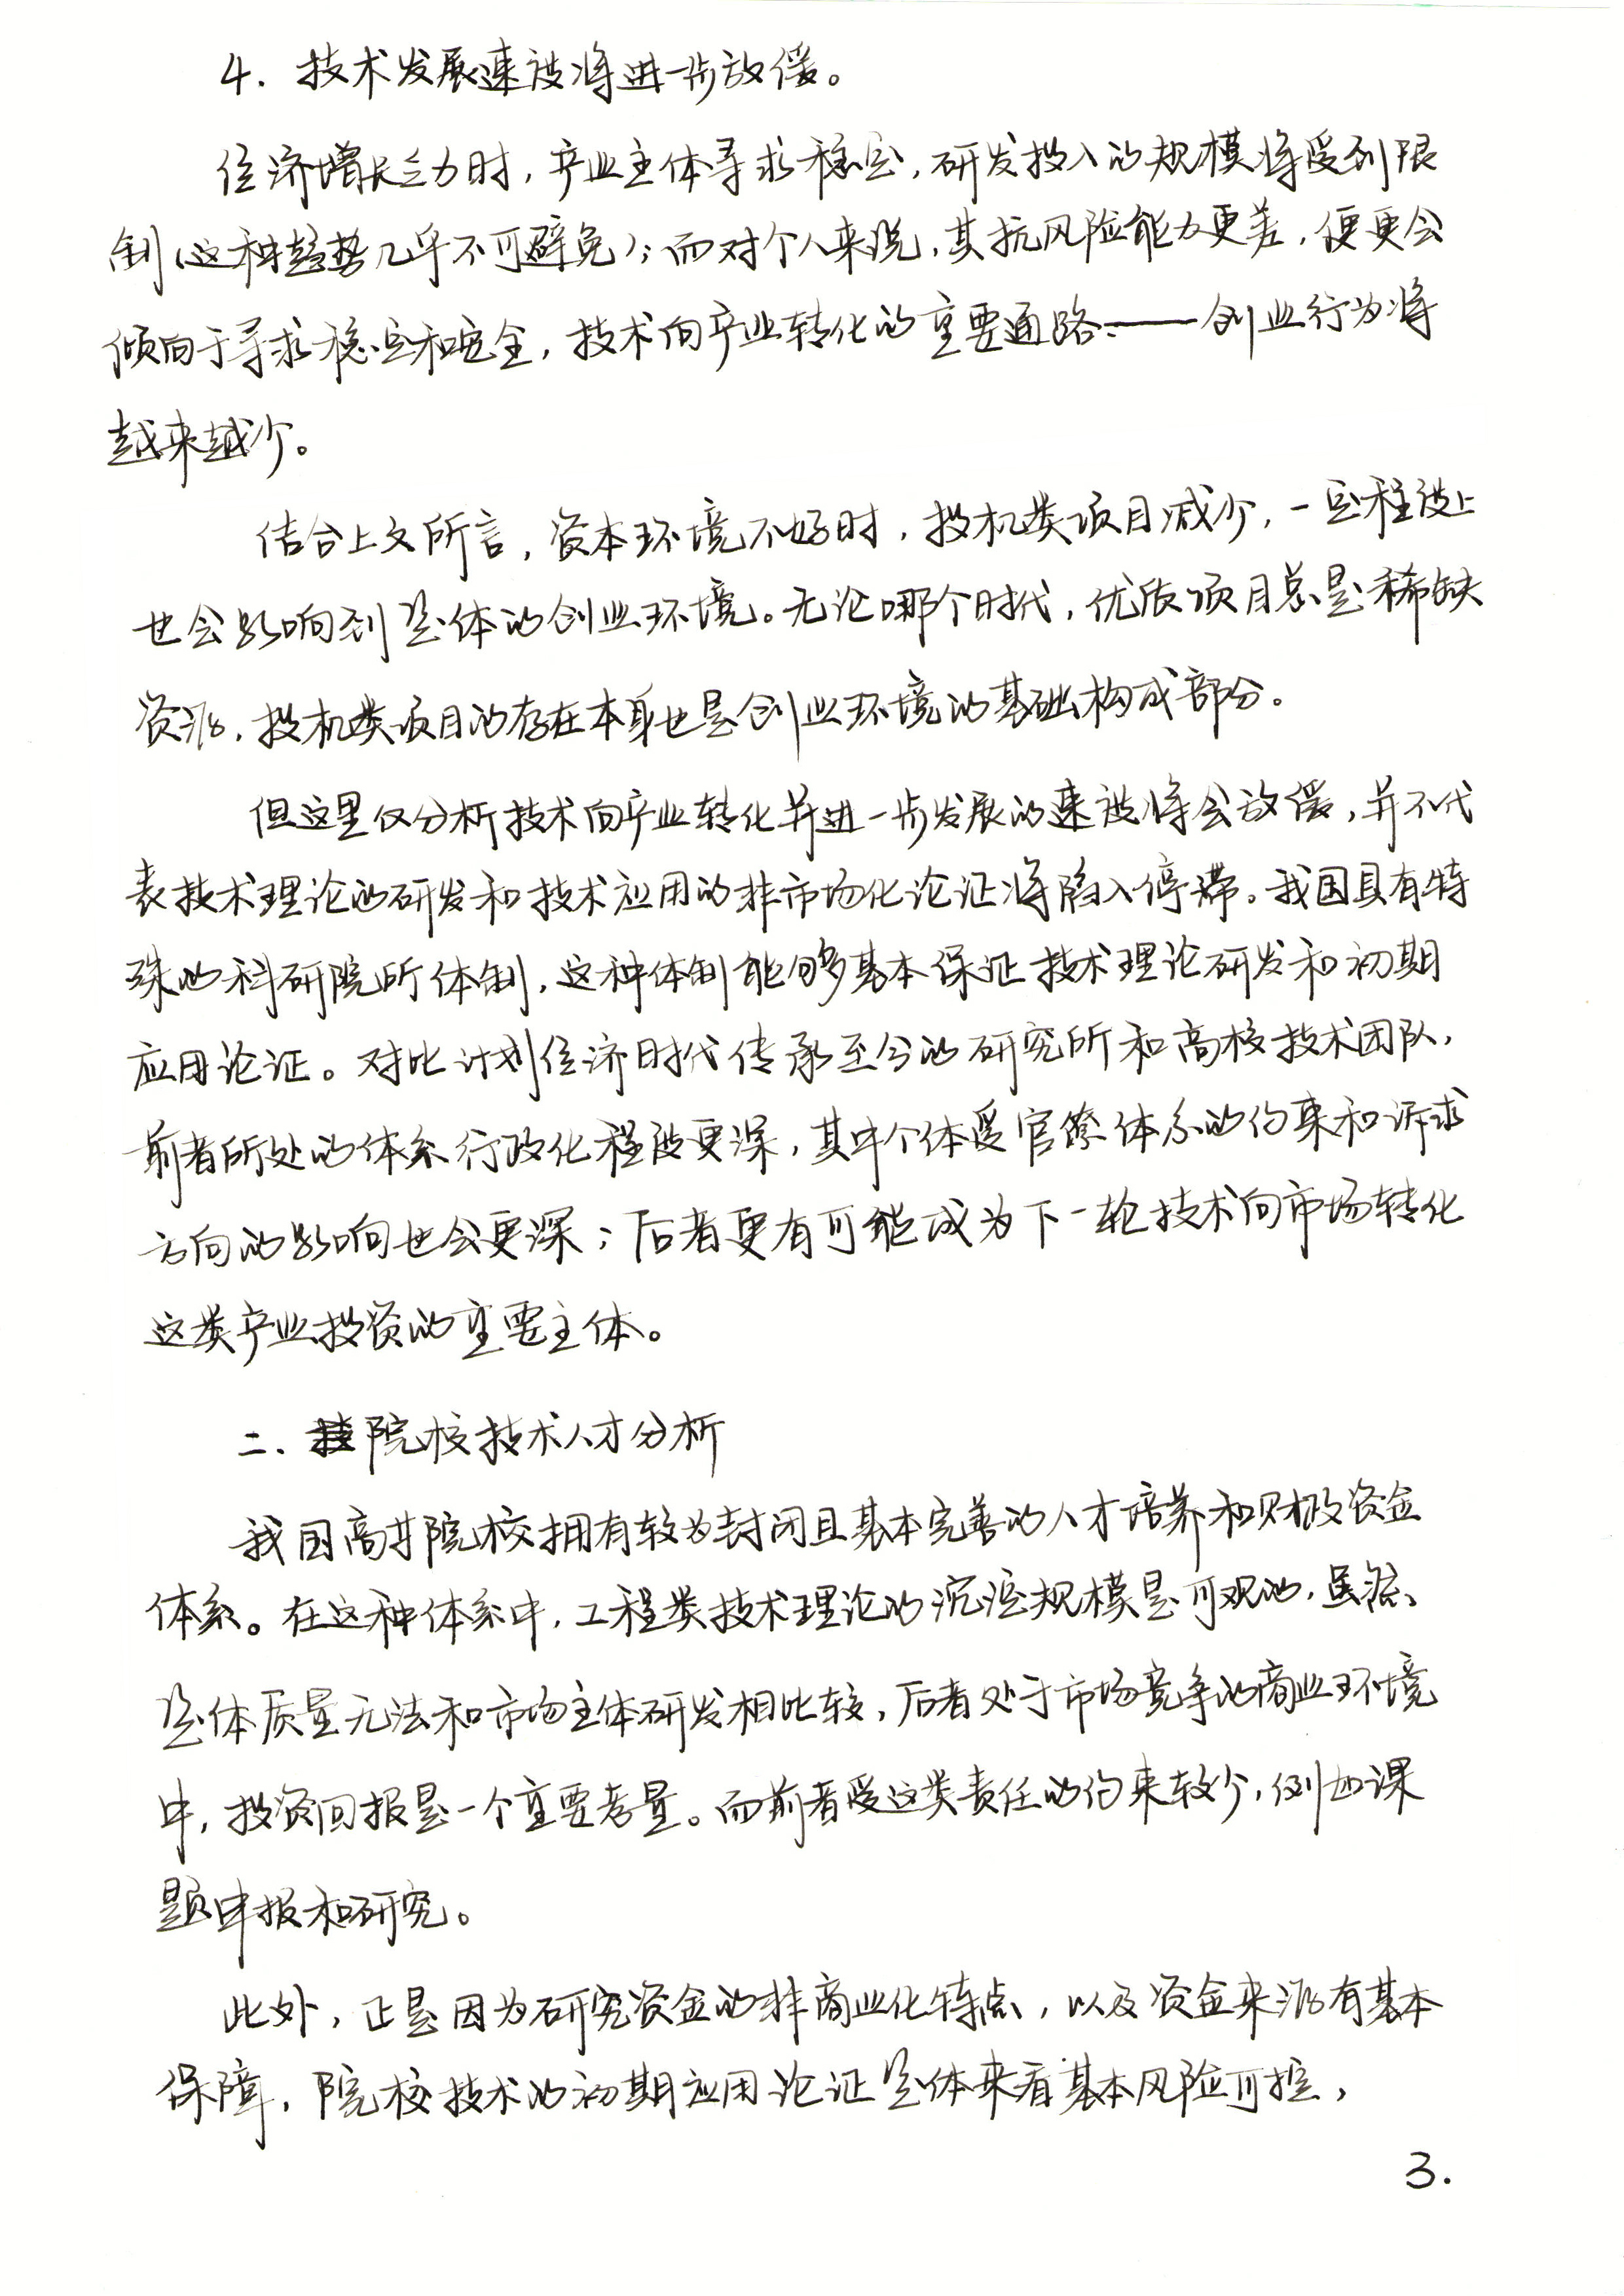 4. 技术发展速度将进一步放缓。
经济增长乏力时，产业主体寻求稳定，研发投入的规模将受到限
制（这种趋势几乎不可避免）；而对个人来说，其抗风险能力更差，便更会
倾向于寻求稳定和安全，技术向产业转化的重要通路——创业行为将
越来越少。
结合上文所言，资本环境不好时，投机类项目减少，一定程度上
也会影响到整体的创业环境。无论哪个时代，优质项目总是稀缺
资源，投机类项目的存在本身也是创业环境的基础构成部分。
但这里仅分析技术向产业转化并进一步发展的速度将会放缓，并不代
表技术理论的研发和技术应用的非市场化论证将陷入停滞。我国具有特
殊的科研院所体制，这种体制能够基本保证技术理论研发和初期
应用论证。对比计划经济时代传承至今的研究所和高校技术团队，
前者所处的体系行政化程度更深，其中个体受官僚体系的约束和诉求
方向的影响也会更深；后者更有可能成为下一轮技术向市场转化
这类产业投资的重要主体。
二、院校技术人才分析
我国高等院校拥有较为封闭且基本完善的人才培养和财政资金
体系。在这种体系中，工程类技术理论的沉淀规模是可观的，虽然
整体质量无法和市场主体研发相比较，后者处于市场竞争的商业环境
中，投资回报是一个重要考量。而前者受这类责任的约束较少，例如课
题申报和研究。
此外，正是因为研究资金的非商业化特点，以及资金来源有基本
保障，院校技术的初期应用论证整体来看基本风险可控，
3.